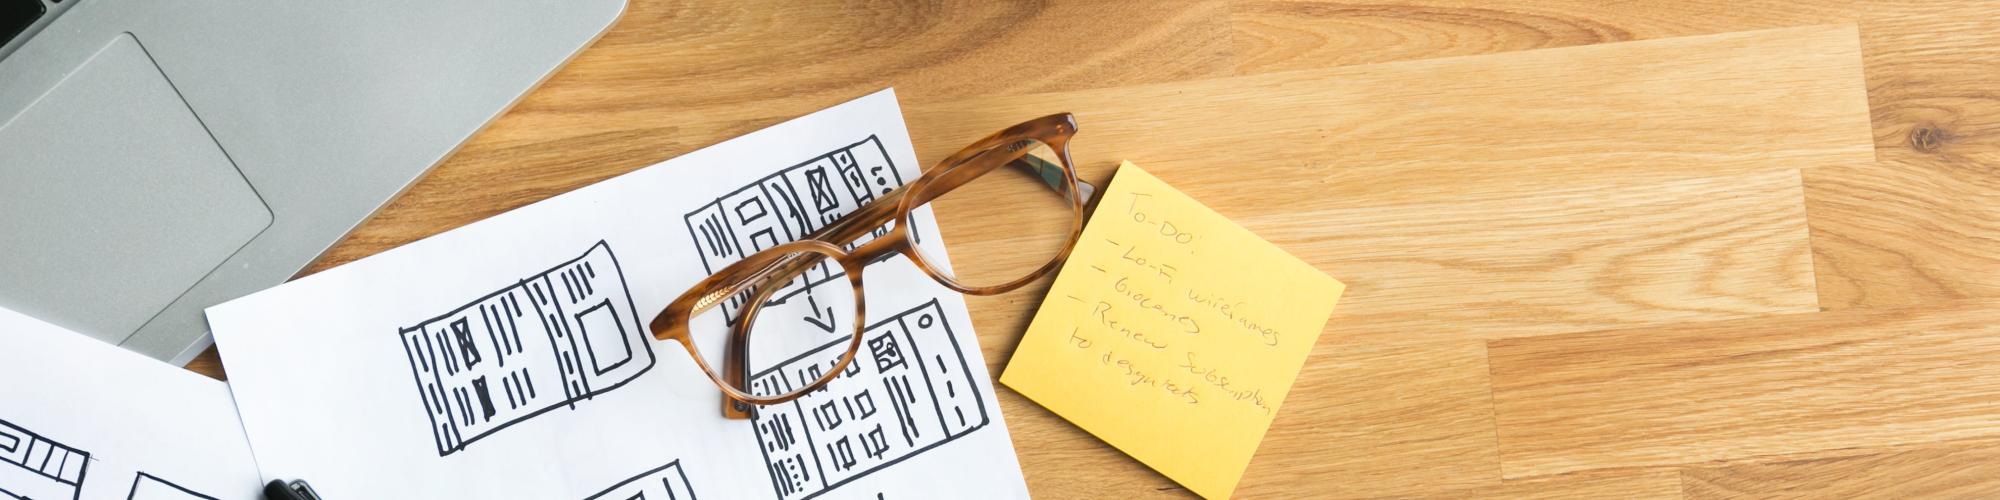 To-DO:
- Lo-Fi wireframes
- Groceries
- Renew Subscription
to design tools